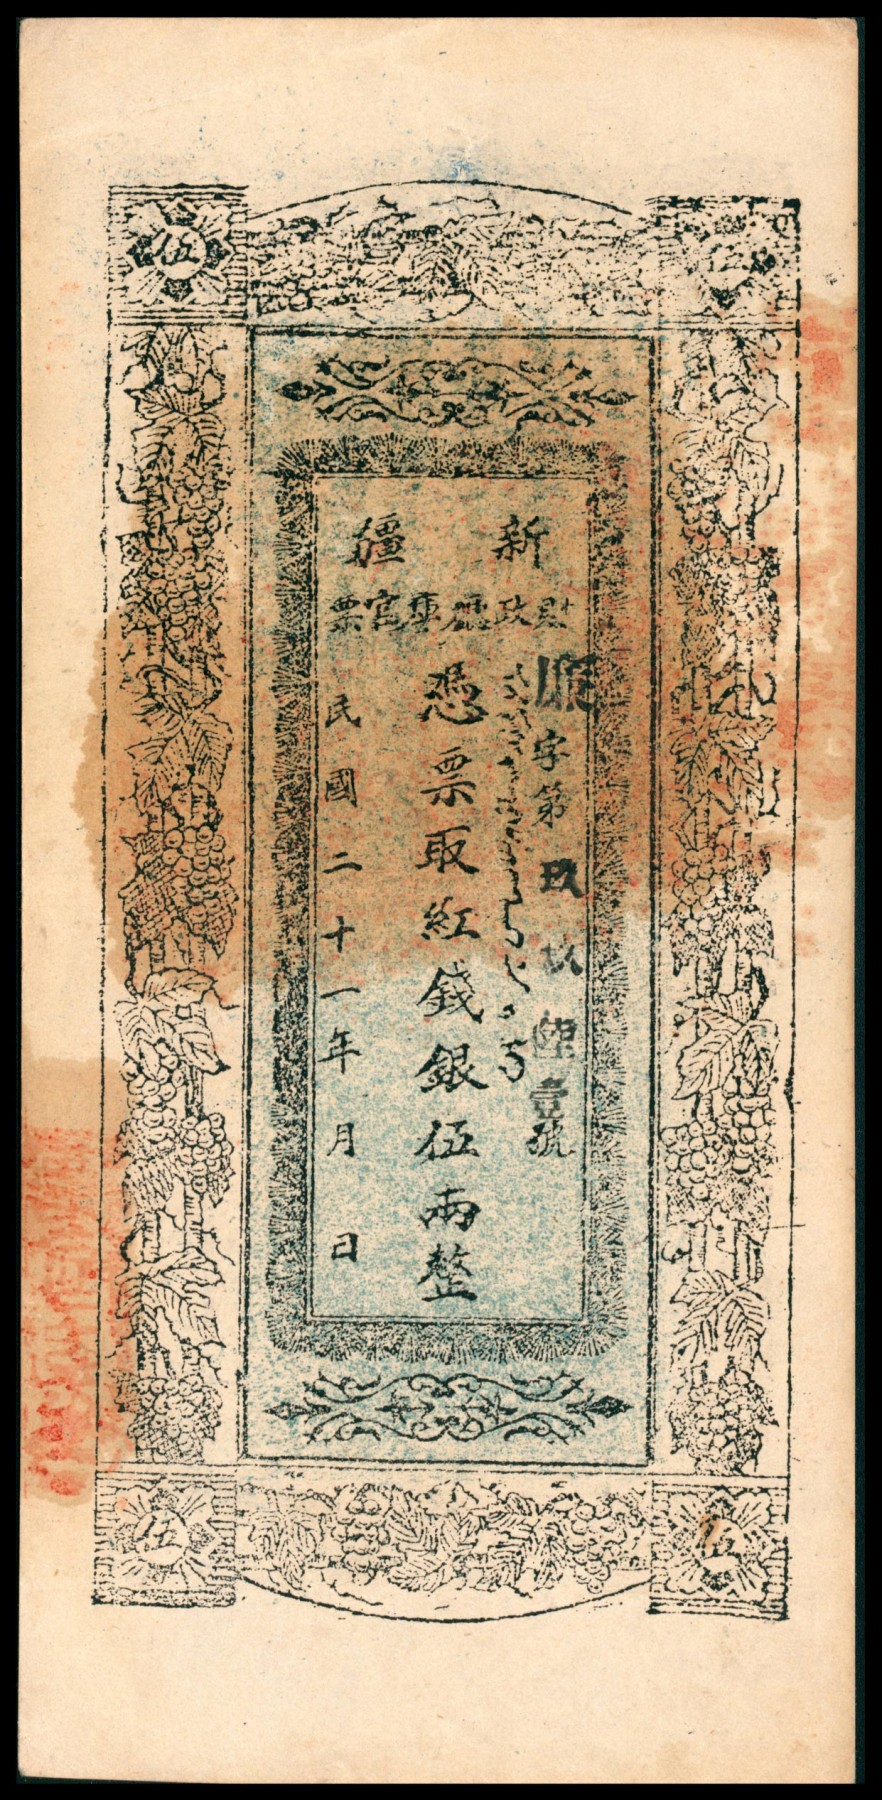 伍
伍
新疆
財政廳庫官票
字第玖玖肆壹號
憑票取紅錢銀伍兩整
民國二十一年 月 日
伍
伍